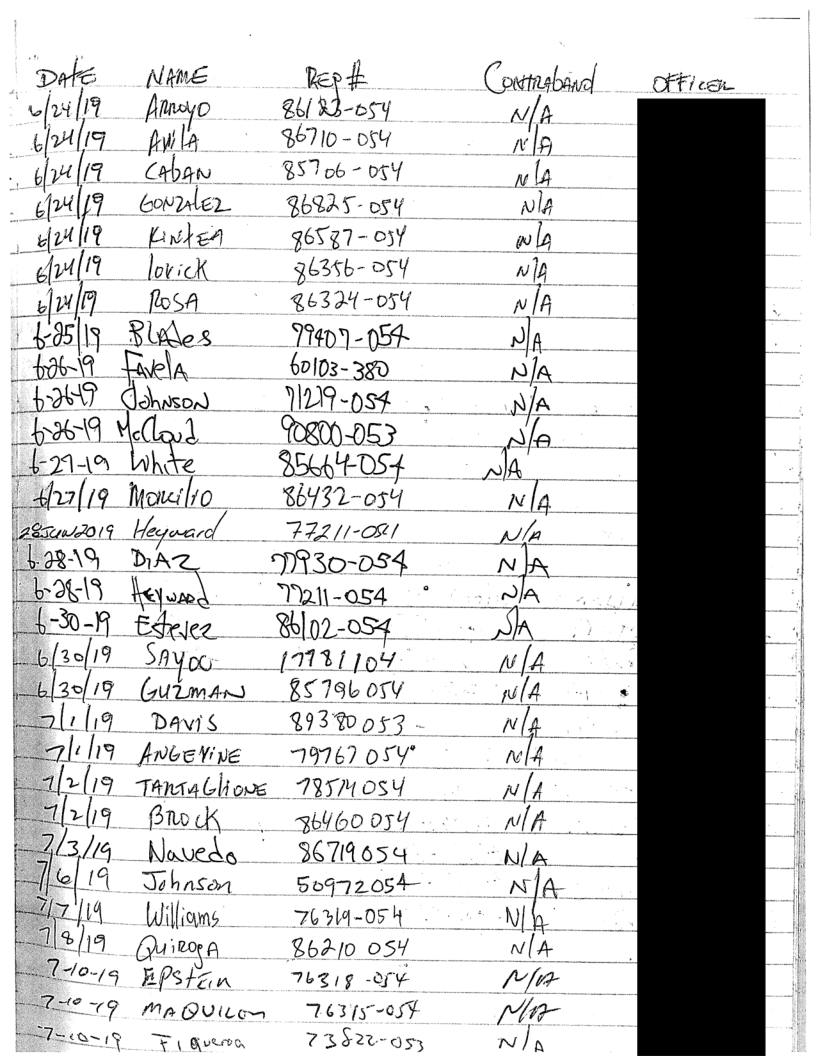 DATE NAME REG # CONTRABAND OFFICER
6/24/19 Arroyo 86123-054 N/A
6/24/19 Avila 86710-054 N/A
6/24/19 CABAN 85706-054 N/A
6/24/19 GONZALEZ 86825-054 N/A
6/24/19 KINTEA 86587-054 N/A
6/24/19 lorick 86356-054 N/A
6/24/19 ROSA 86324-054 N/A
6-25/19 BLADes 79407-054 N/A
6-26-19 FAvelA 60103-380 N/A
6-26-19 JohNsoN 71219-054 N/A
6-26-19 McCloud 90800-053 N/A
6-27-19 White 85664-054 N/A
6/27/19 86432-054 N/A
28JUN2019 Heyward 77211-054 N/A
6-28-19 DiAZ 77930-054 N/A
6-28-19 HEYWARD 77211-054 N/A
6-30-19 Estevez 86102-054 N/A
6/30/19 SAYOC 17781104 N/A
6/30/19 GUZMAN 85796054 N/A
7/1/19 DAVIS 89380053 N/A
7/1/19 ANGEVINE 79767054 N/A
7/2/19 TARTAGLIONE 78514054 N/A
7/2/19 BROCK 86460054 N/A
7/3/19 Navedo 86719054 N/A
7/6/19 Johnson 50972054 N/A
7/7/19 Williams 76319-054 N/A
7/8/19 QuirogA 86210 054 N/A
7-10-19 EPStEin 76318-054 N/A
7-10-19 MAQUILON 76315-054 N/A
7-10-19 FIgueroa 73822-053 N/A